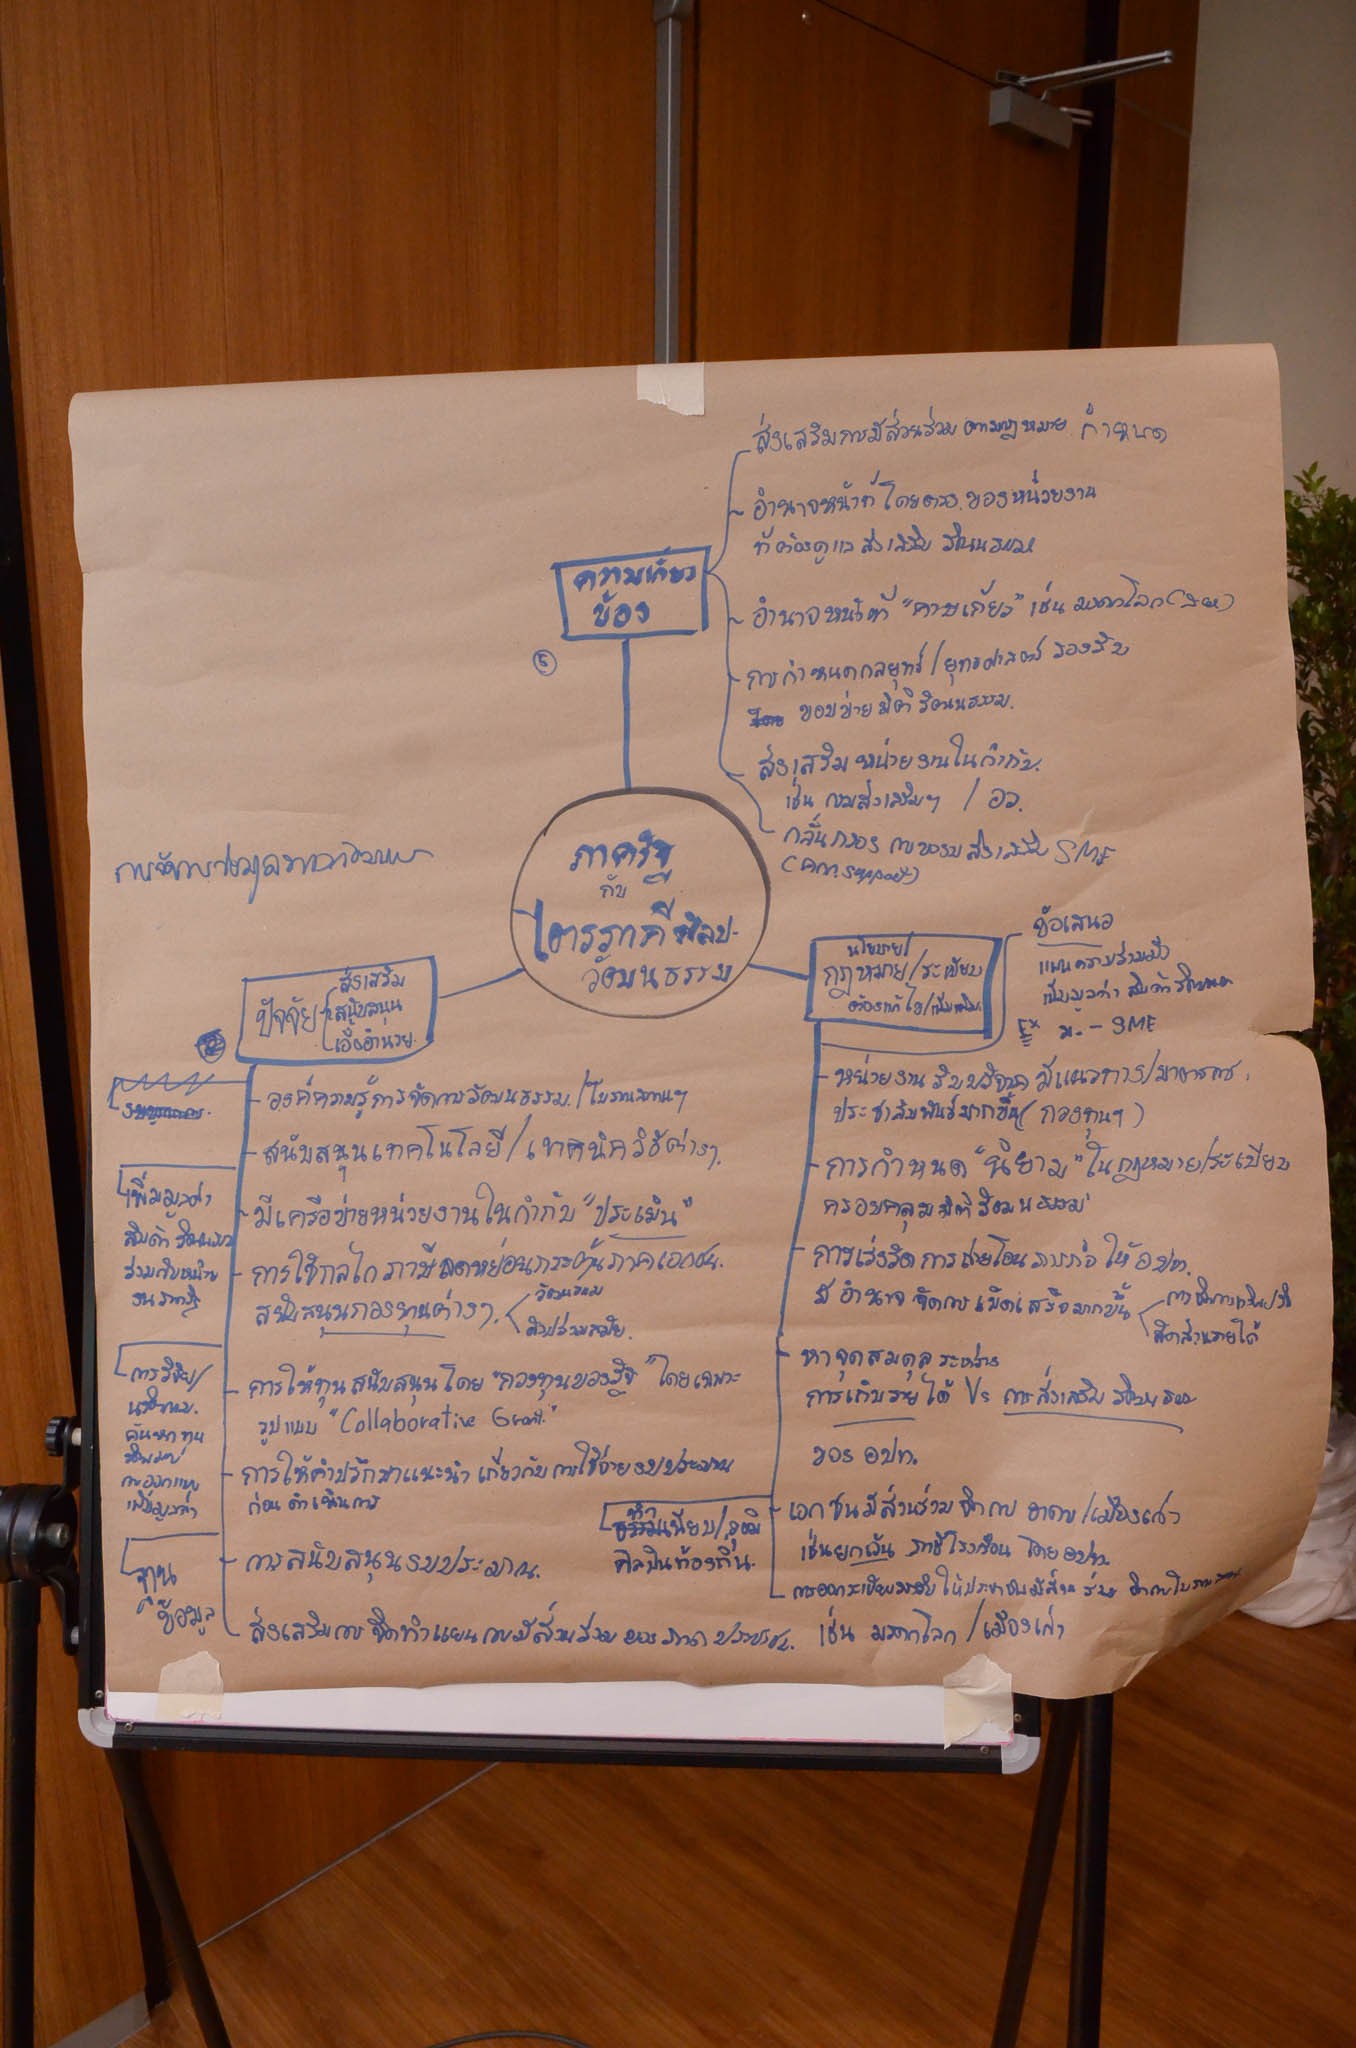 ส่งเสริมการมีส่วนร่วม ตามกฎหมาย กำหนด
อำนาจหน้าที่โดยตรง ของหน่วยงาน
ที่ต้องดูแล ส่งเสริม วัฒนธรรม
ความเกี่ยว
ข้อง
อำนาจหน้าที่ "คาบเกี่ยว" เช่น มรดกโลก
การกำหนดกลยุทธ์ / ยุทธศาสตร์ รองรับ
ขอบข่าย มิติ วัฒนธรรม.
ส่งเสริม หน่วยงานในกำกับ.
เช่น กรมส่งเสริมฯ / อว.
กลั่นกรอง ส่งเสริม SME
ภาครัฐ
กับ
ศิลป-
วัฒนธรรม
ปัจจัย
ส่งเสริม
สนับสนุน
เอื้ออำนวย.
องค์ความรู้ การจัดการวัฒนธรรม. / โบราณสถานฯ
สนับสนุนเทคโนโลยี / เทคนิควิธีต่างๆ.
มีเครือข่ายหน่วยงานในกำกับ "ประเมิน"
การใช้กลไก ภาษี ลดหย่อนกระตุ้น ภาคเอกชน.
สนับสนุนกองทุนต่างๆ.
วัฒนธรรม
ศิลปร่วมสมัย.
การให้ทุน สนับสนุนโดย "กองทุนของรัฐ" โดยเฉพาะ
รูปแบบ "Collaborative Grant."
การให้คำปรึกษาแนะนำ เกี่ยวกับ การใช้จ่ายงบประมาณ
ก่อน ดำเนินการ
การสนับสนุนงบประมาณ.
ส่งเสริมการ จัดทำแผน การมีส่วนร่วม ของ ภาค ประชาชน.
เพิ่มมูลค่า
สินค้าวัฒนธรรม
ร่วมกับหน่วย
งาน ภาครัฐ
การวิจัย/
ค้นหา ทุน
การออกแบบ
เพิ่มมูลค่า
ฐาน
ข้อมูล
นโยบาย/
กฎหมาย/ระเบียบ
ต้องแก้ไข/เพิ่มเติม.
ข้อเสนอ
แผนความร่วมมือ
เพิ่มมูลค่า สินค้าวัฒนธรรม
Ex ม. - SME
หน่วยงาน รับบริจาค มีแนวทาง/มาตรการ.
ประชาสัมพันธ์มากขึ้น (กองทุนฯ)
การกำหนด "นิยาม" ในกฎหมาย/ระเบียบ
ครอบคลุม มิติ วัฒนธรรม
การเร่งรัด การถ่ายโอน ภารกิจ ให้ อปท.
มีอำนาจ จัดการ เบ็ดเสร็จมากขึ้น
สัดส่วนรายได้
หาจุดสมดุล ระหว่าง
การเก็บรายได้ Vs การส่งเสริม วัฒนธรรม
ของ อปท.
ทำ
ธรรมเนียบ/ภูมิ
ศิลปินท้องถิ่น.
เอกชนมีส่วนร่วม จัดการ อาคาร/เมืองเก่า
เช่นยกเว้น ภาษีโรงเรือน โดย อปท.
การออกระเบียบรองรับ ให้ประชาชนมีส่วน ร่วม
เช่น มรดกโลก / เมืองเก่า